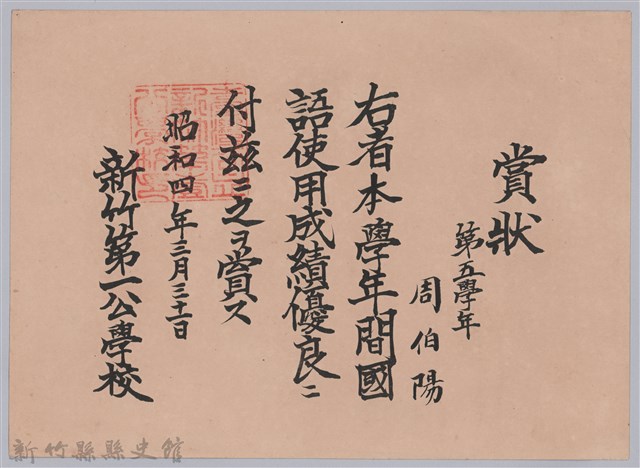 賞狀
第五學年
周伯陽
右者本學年間國
語使用成績優良ニ
付茲ニ之ヲ賞ス
昭和四年三月三十一日
新竹第一公學校
新竹縣縣史館